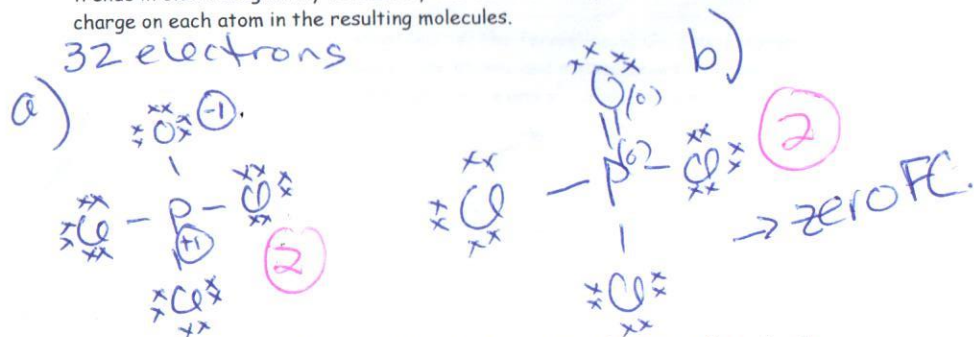 charge on each atom in the resulting molecules.
32 electrons
a)
O -1
Cl - P - Cl
+1
Cl
2
b)
O (0)
Cl - P (0) - Cl
Cl
2
→ zero FC.